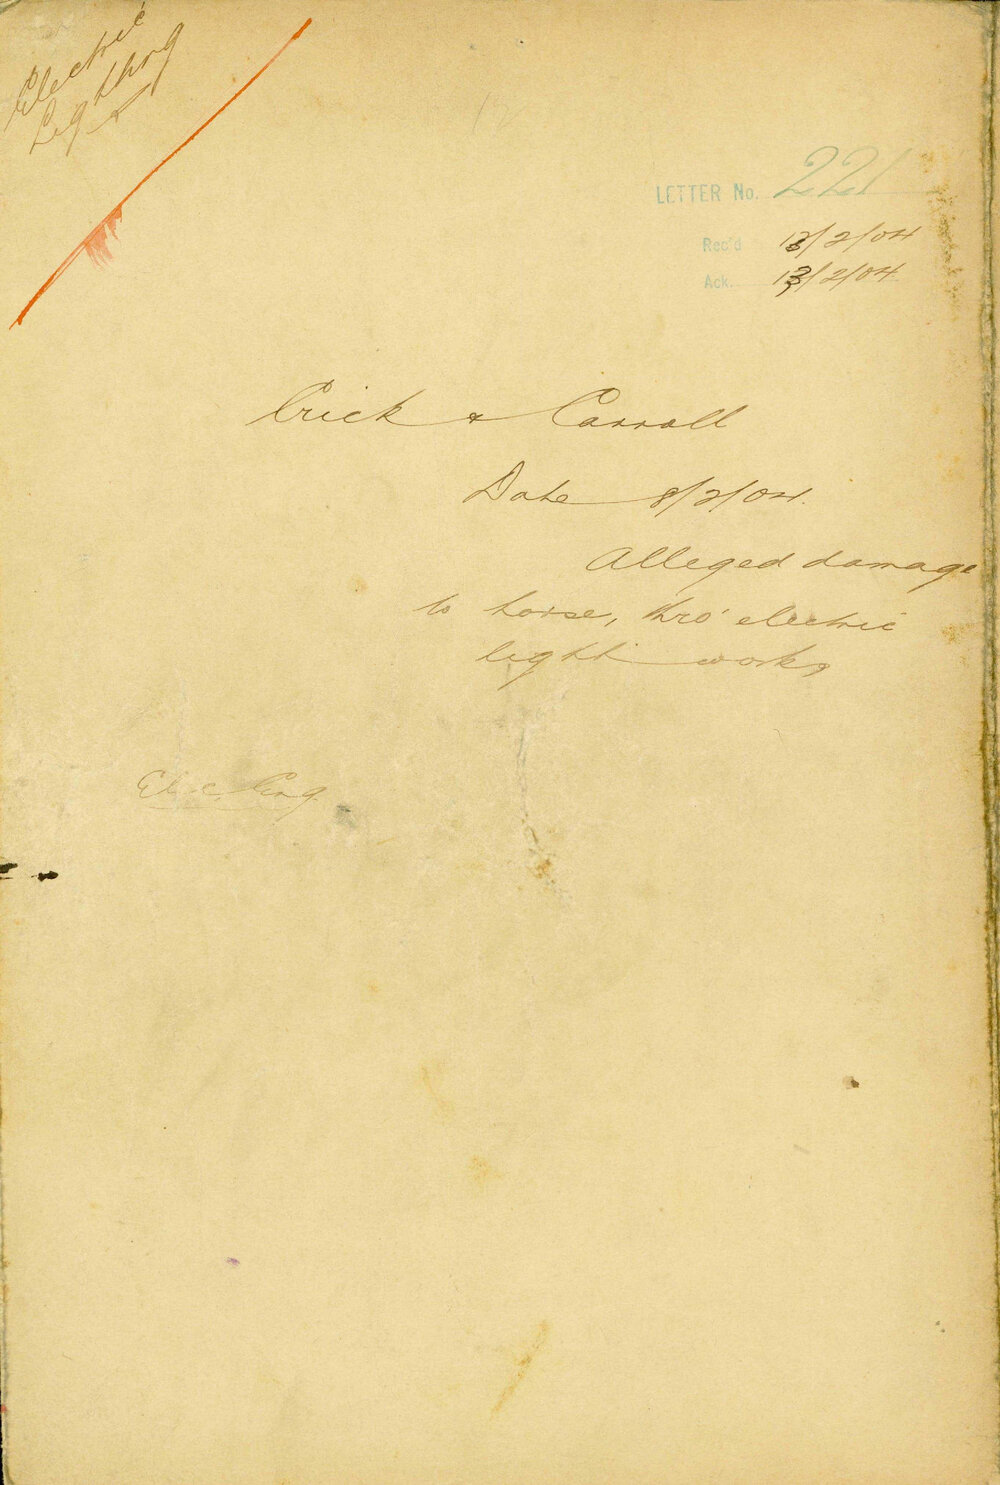 Electric
Lighting
LETTER No. 221
Rec'd 13/2/04
Ack. 13/2/04
Crick & Carroll
Date 8/2/04.
Alleged damage
to horse, thro' electric
light works
Elec. Eng.